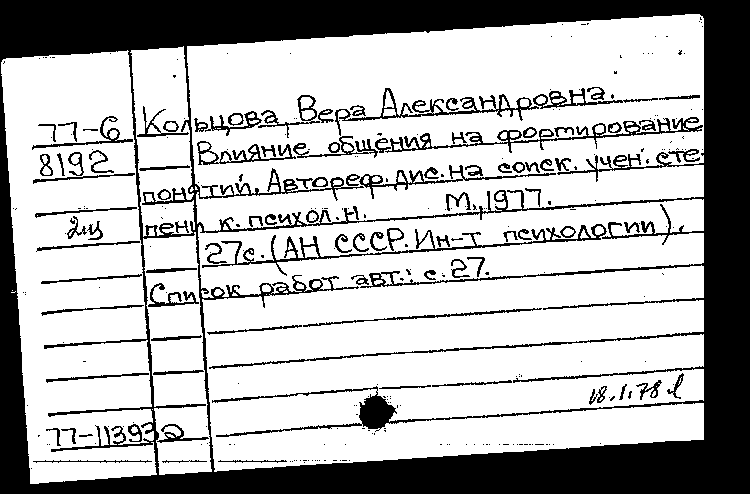 77-6 Кольцова, Вера Александровна.
8192 Влияние общения на формирование
понятий. Автореф. дис. на соиск. учен. сте-
2щ пени к. психол. н. М., 1977.
27с. (АН СССР. Ин-т психологии).
Список работ авт.: с. 27.
18.1.78
77-11393